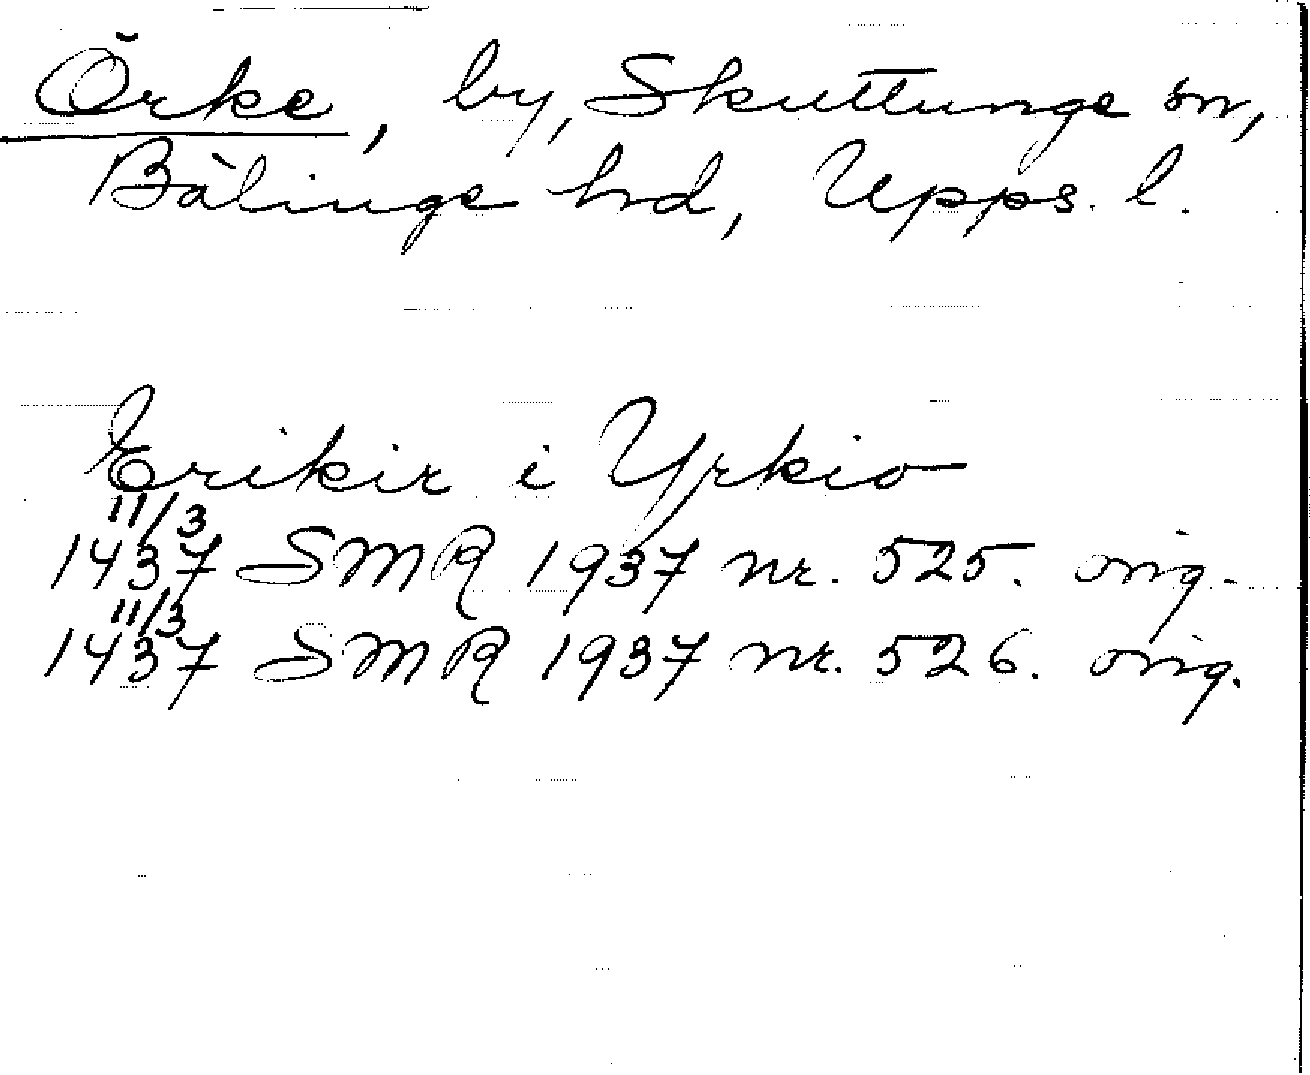 Örke, by, Skuttunge sn,
Bälinge hd, Upps. l.
Erikir i Yrkio
11/3
1437 SMR 1937 nr. 525. orig.
11/3
1437 SMR 1937 nr. 526. orig.